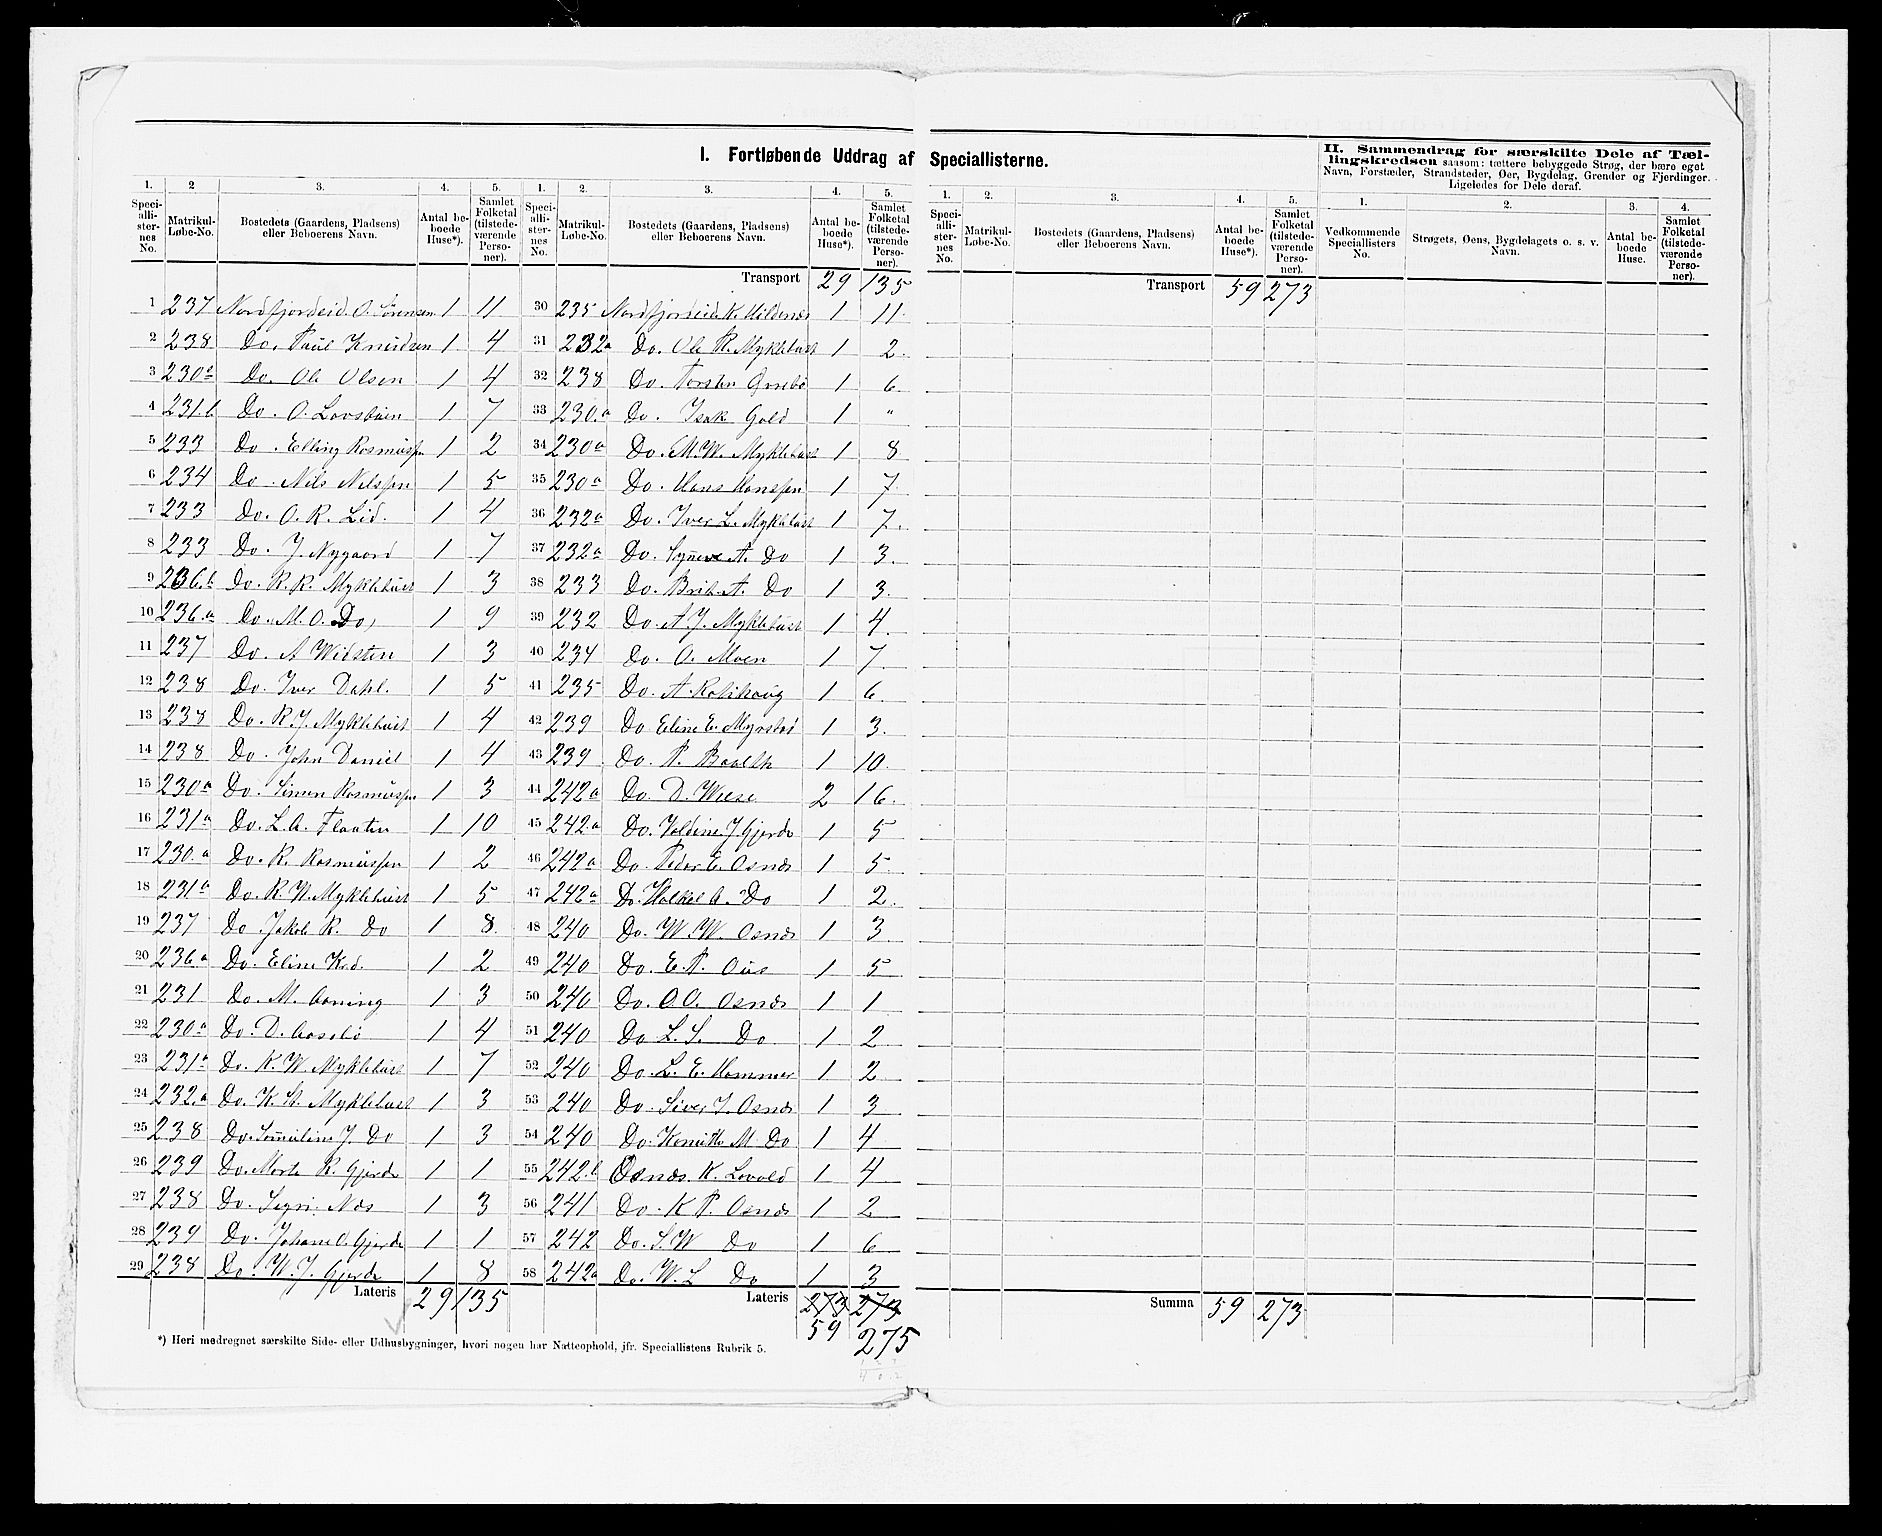 I. Fortløbende Uddrag af Speciallisterne.
II. Sammendrag for særskilte Dele af Tællingskredsen saasom: tættere bebyggede Strøg, der bære eget
Navn, Forstæder, Strandsteder, Øer, Bygdelag, Grender og Fjerdinger.
Ligeledes for Dele deraf.
1. 2 3. 4. 5.
Speciallisternes No. Matrikul-Løbe-No. Bostedets (Gaardens, Pladsens) eller Beboerens Navn. Antal beboede Huse*). Samlet Folketal (tilstedeværende Personer).
1 237 Nordfjordeid O. Sörensen 1 11
2 238 Do. Paul Knudsen 1 4
3 230a Do. Ole Olsen 1 4
4 231.b Do. O. Lovsbüen 1 7
5 233 Do. Elling Rasmüssen 1 2
6 234 Do. Nils Nilssen 1 5
7 233 Do. O. R. Lid. 1 4
8 233 Do. J. Nygaard 1 7
9 236.b Do. R. R. Myklebüst 1 3
10 236.a Do. M. O. Do, 1 9
11 237 Do. A Wilsten 1 3
12 238 Do. Iver Dahl. 1 5
13 238 Do. R. J. Myklebüst 1 4
14 238 Do. John Daniel 1 4
15 230a Do. Simen Rasmüssen 1 3
16 231a Do. L. A. Flaaten 1 10
17 230.a Do. R. Rasmüssen 1 2
18 231a Do. R. W. Myklebüst 1 5
19 237 Do. Jakob R. Do 1 8
20 236.a Do. Eline Kd. 1 2
21 231 Do. M. Aaning 1 3
22 230a Do. D. Aasebö 1 4
23 231a Do. K. W. Myklebüst 1 7
24 232.a Do. K. St. Myklebüst 1 3
25 238 Do. J. Do 1 3
26 239 Do. Marte R. Gjerde 1 1
27 238 Do. Næs 1 3
28 239 Do. Johane O. Gjerde 1 1
29 238 Do. W. J. Gjerde 1 8
Lateris 29 135
1. 2. 3. 4. 5.
Speciallisternes No. Matrikul-Løbe-No. Bostedets (Gaardens, Pladsens) eller Beboerens Navn. Antal beboede Huse*). Samlet Folketal (tilstedeværende Personer).
Transport 29 135
30 235 Nordfjordeid K. Hildenæs 1 11
31 232a Do. Ole R. Myklebüst 1 2
32 238 Do. Torsten 1 6
33 230.a Do. Isak Gald 1 "
34 230a Do. M. W. Myklebüst 1 8
35 230a Do. Hans Hanssen 1 7
36 232a Do. Iver L. Myklebüst 1 7
37 232a Do. Synneve A. Do 1 3
38 233 Do. Brit A. Do 1 3
39 232 Do. A J. Myklebüst 1 4
40 234 Do. O. Moen 1 7
41 235 Do. A. 1 6
42 239 Do Eline E. Myrstad 1 3
43 239 Do. P. Baalth 1 10
44 242a Do. D. Wiese 2 16
45 242.a Do. J Gjerde 1 5
46 242a Do. Peder E. Osnæs 1 5
47 242a Do. A. Do 1 2
48 240 Do. W. W. Osnæs 1 3
49 240 Do. E. P. Ous 1 5
50 240 Do. O. O. Osnæs 1 1
51 240 Do L. S. Do 1 2
52 240 Do. L. E. Hammer 1 2
53 240 Do. Siver J. Osnæs 1 3
54 240 Do. M. Do 1 4
55 242.b Osnæs. K. Lovold 1 4
56 241 Do. K P. Osnæs 1 2
57 242 Do. S. W Do 1 6
58 242a Do. W. L Do 1 3
Lateris 273 273
59 275
*) Heri medregnet særskilte Side- eller Udhusbygninger, hvori nogen har Natteophold, jfr. Speciallistens Rubrik 5.
1. 2. 3. 4. 5.
Speciallisternes No. Matrikul-Løbe-No. Bostedets (Gaardens, Pladsens) eller Beboerens Navn. Antal beboede Huse*). Samlet Folketal (tilstedeværende Personer).
Transport 59 273
Summa 59 273
1. 2. 3. 4.
Vedkommende Speciallisters No. Strøgets, Øens, Bygdelagets o. s. v. Navn. Antal beboede Huse. Samlet Folketal (tilstedeværende Personer).